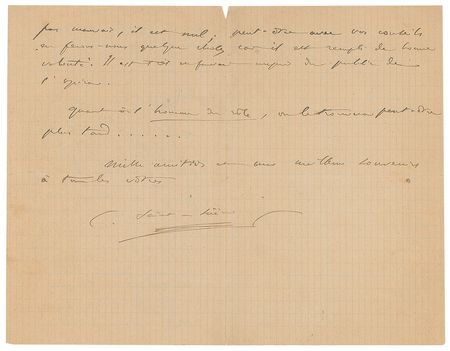 pas mauvais, il est nul; peut-être avec vos conseils
en ferons-nous quelque chose, car il est rempli de bonne
volonté. Il est très en faveur auprès du public de
l'opéra.
quant à l'homme du rôle, on le trouvera peut-être
plus tard......
Mille amitiés et mes meilleurs souvenirs
à tous les vôtres
C. Saint-Saëns